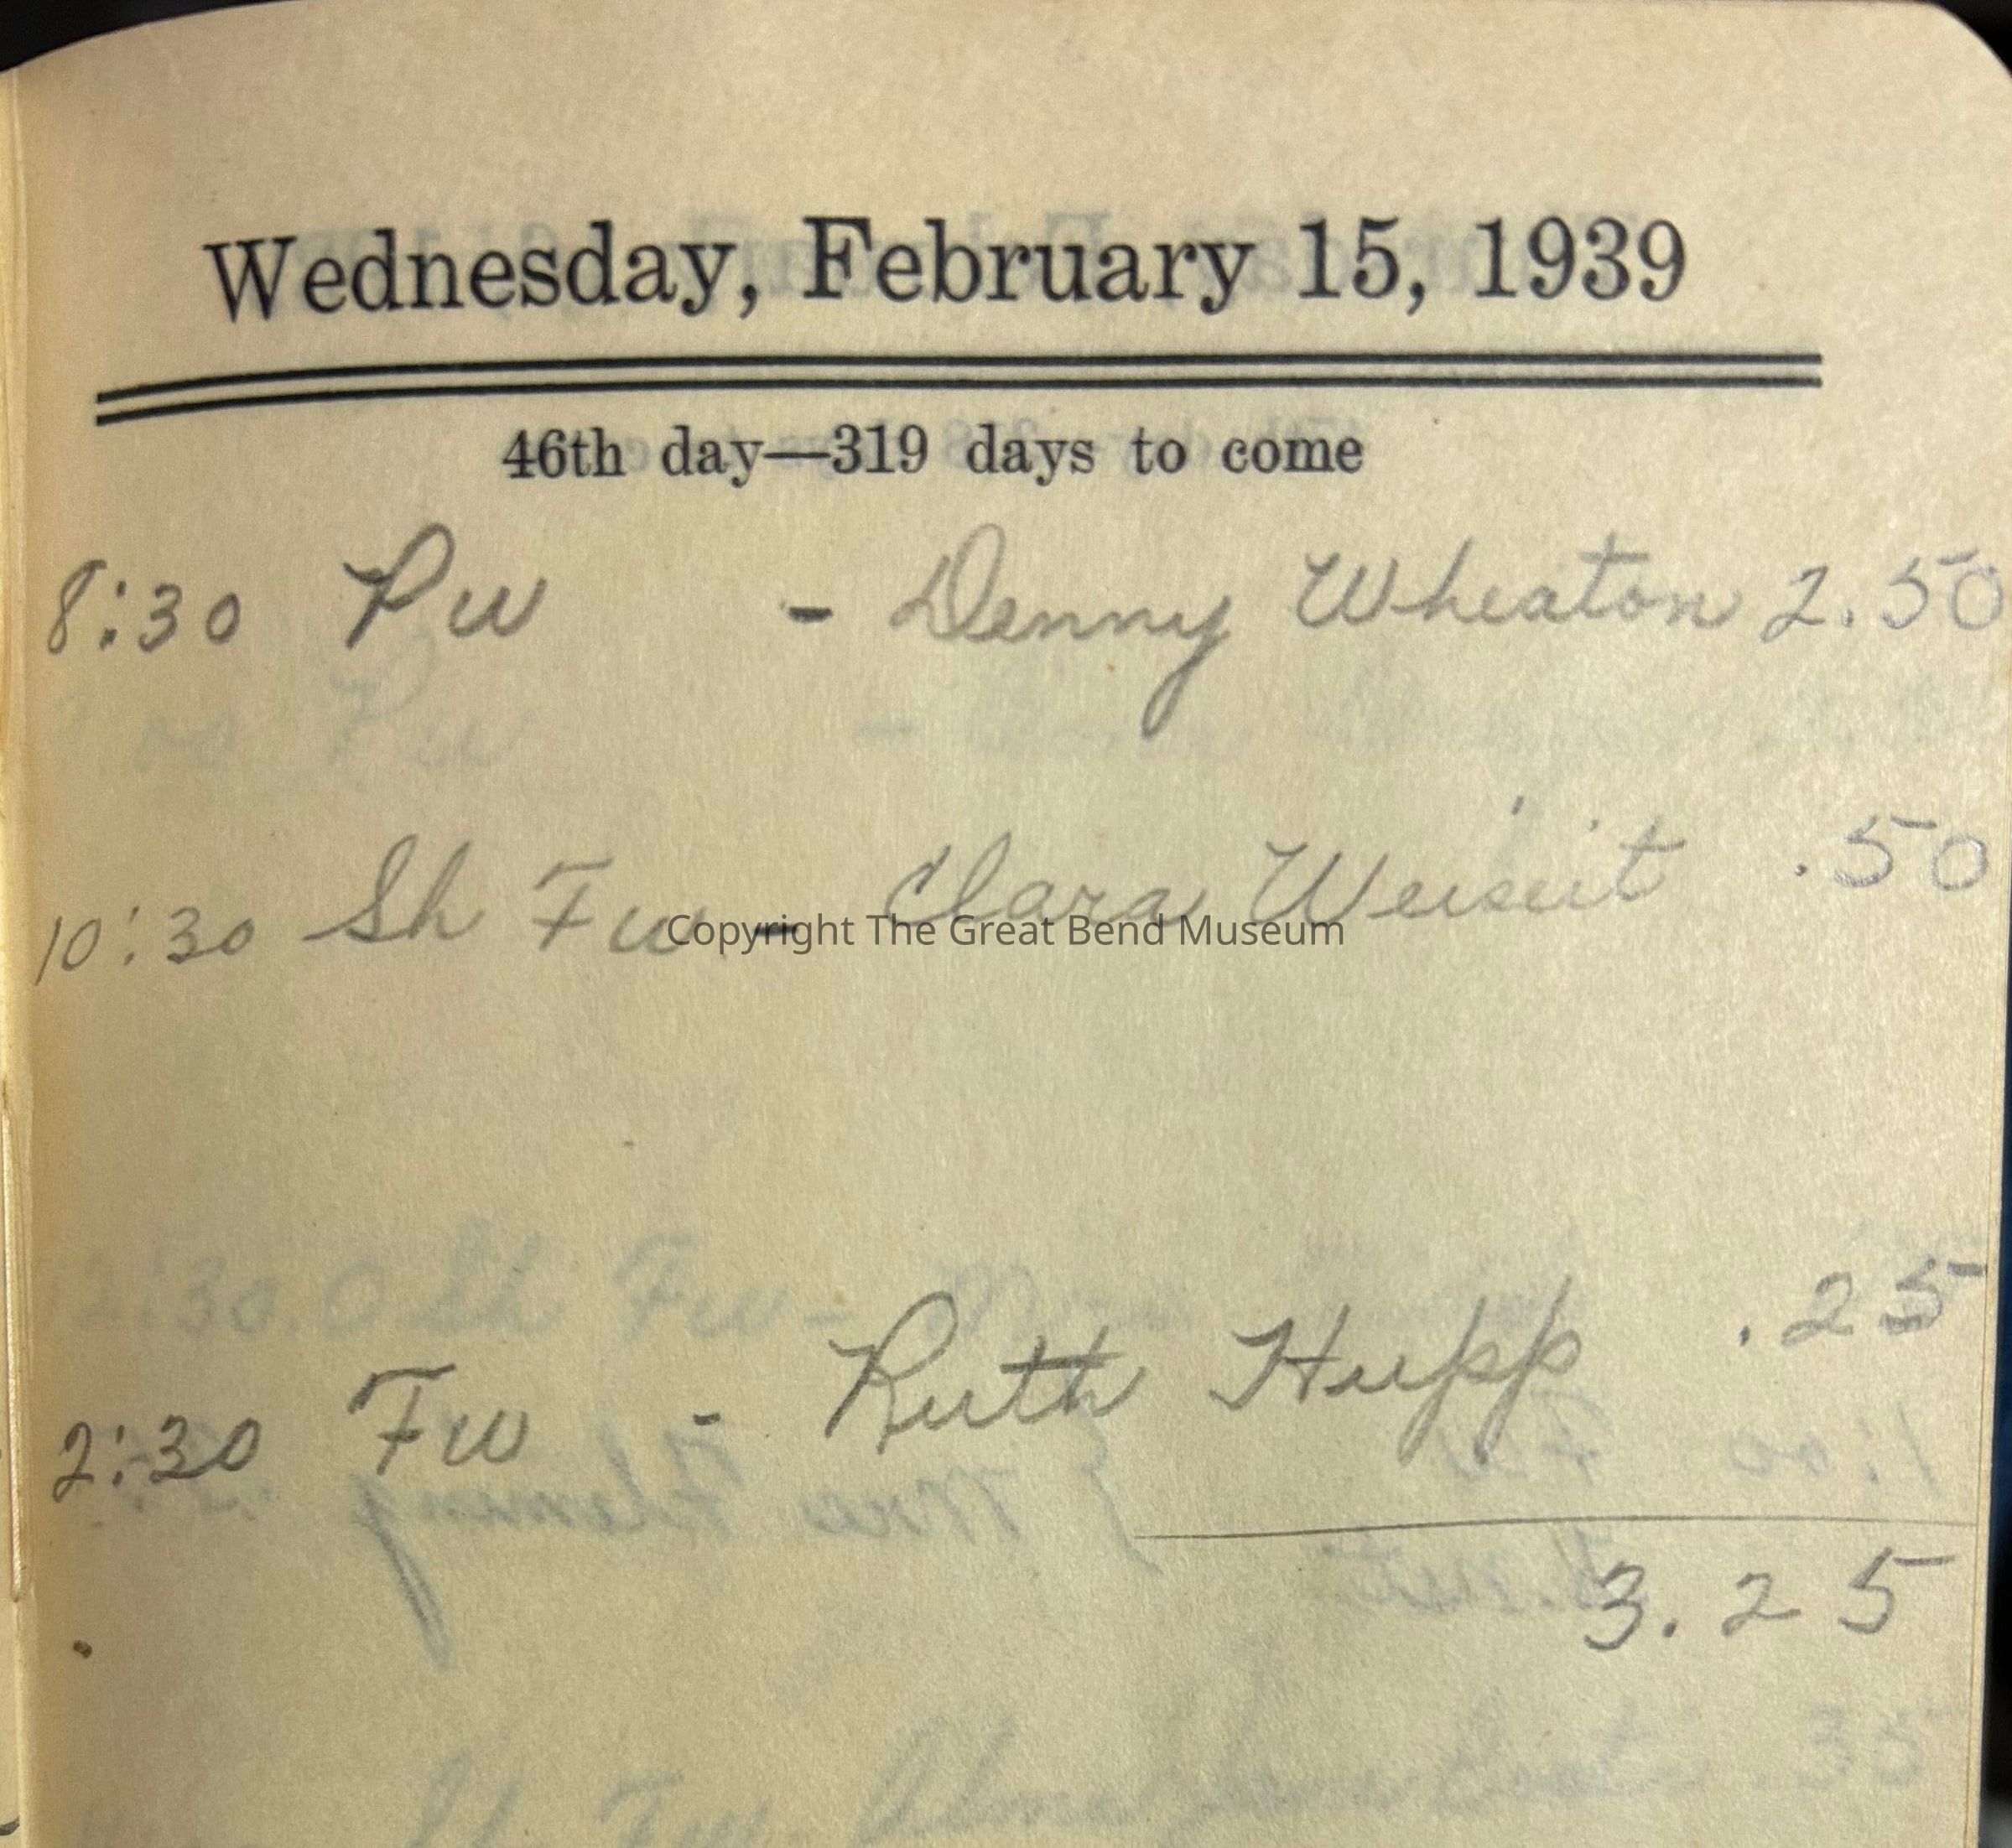 Wednesday, February 15, 1939
46th day—319 days to come
8:30 Pw - Denny Wheaton 2.50
10:30 Sh Fw - Clara .50
Copyright The Great Bend Museum
2:30 Fw - Ruth Hupp .25
3.25